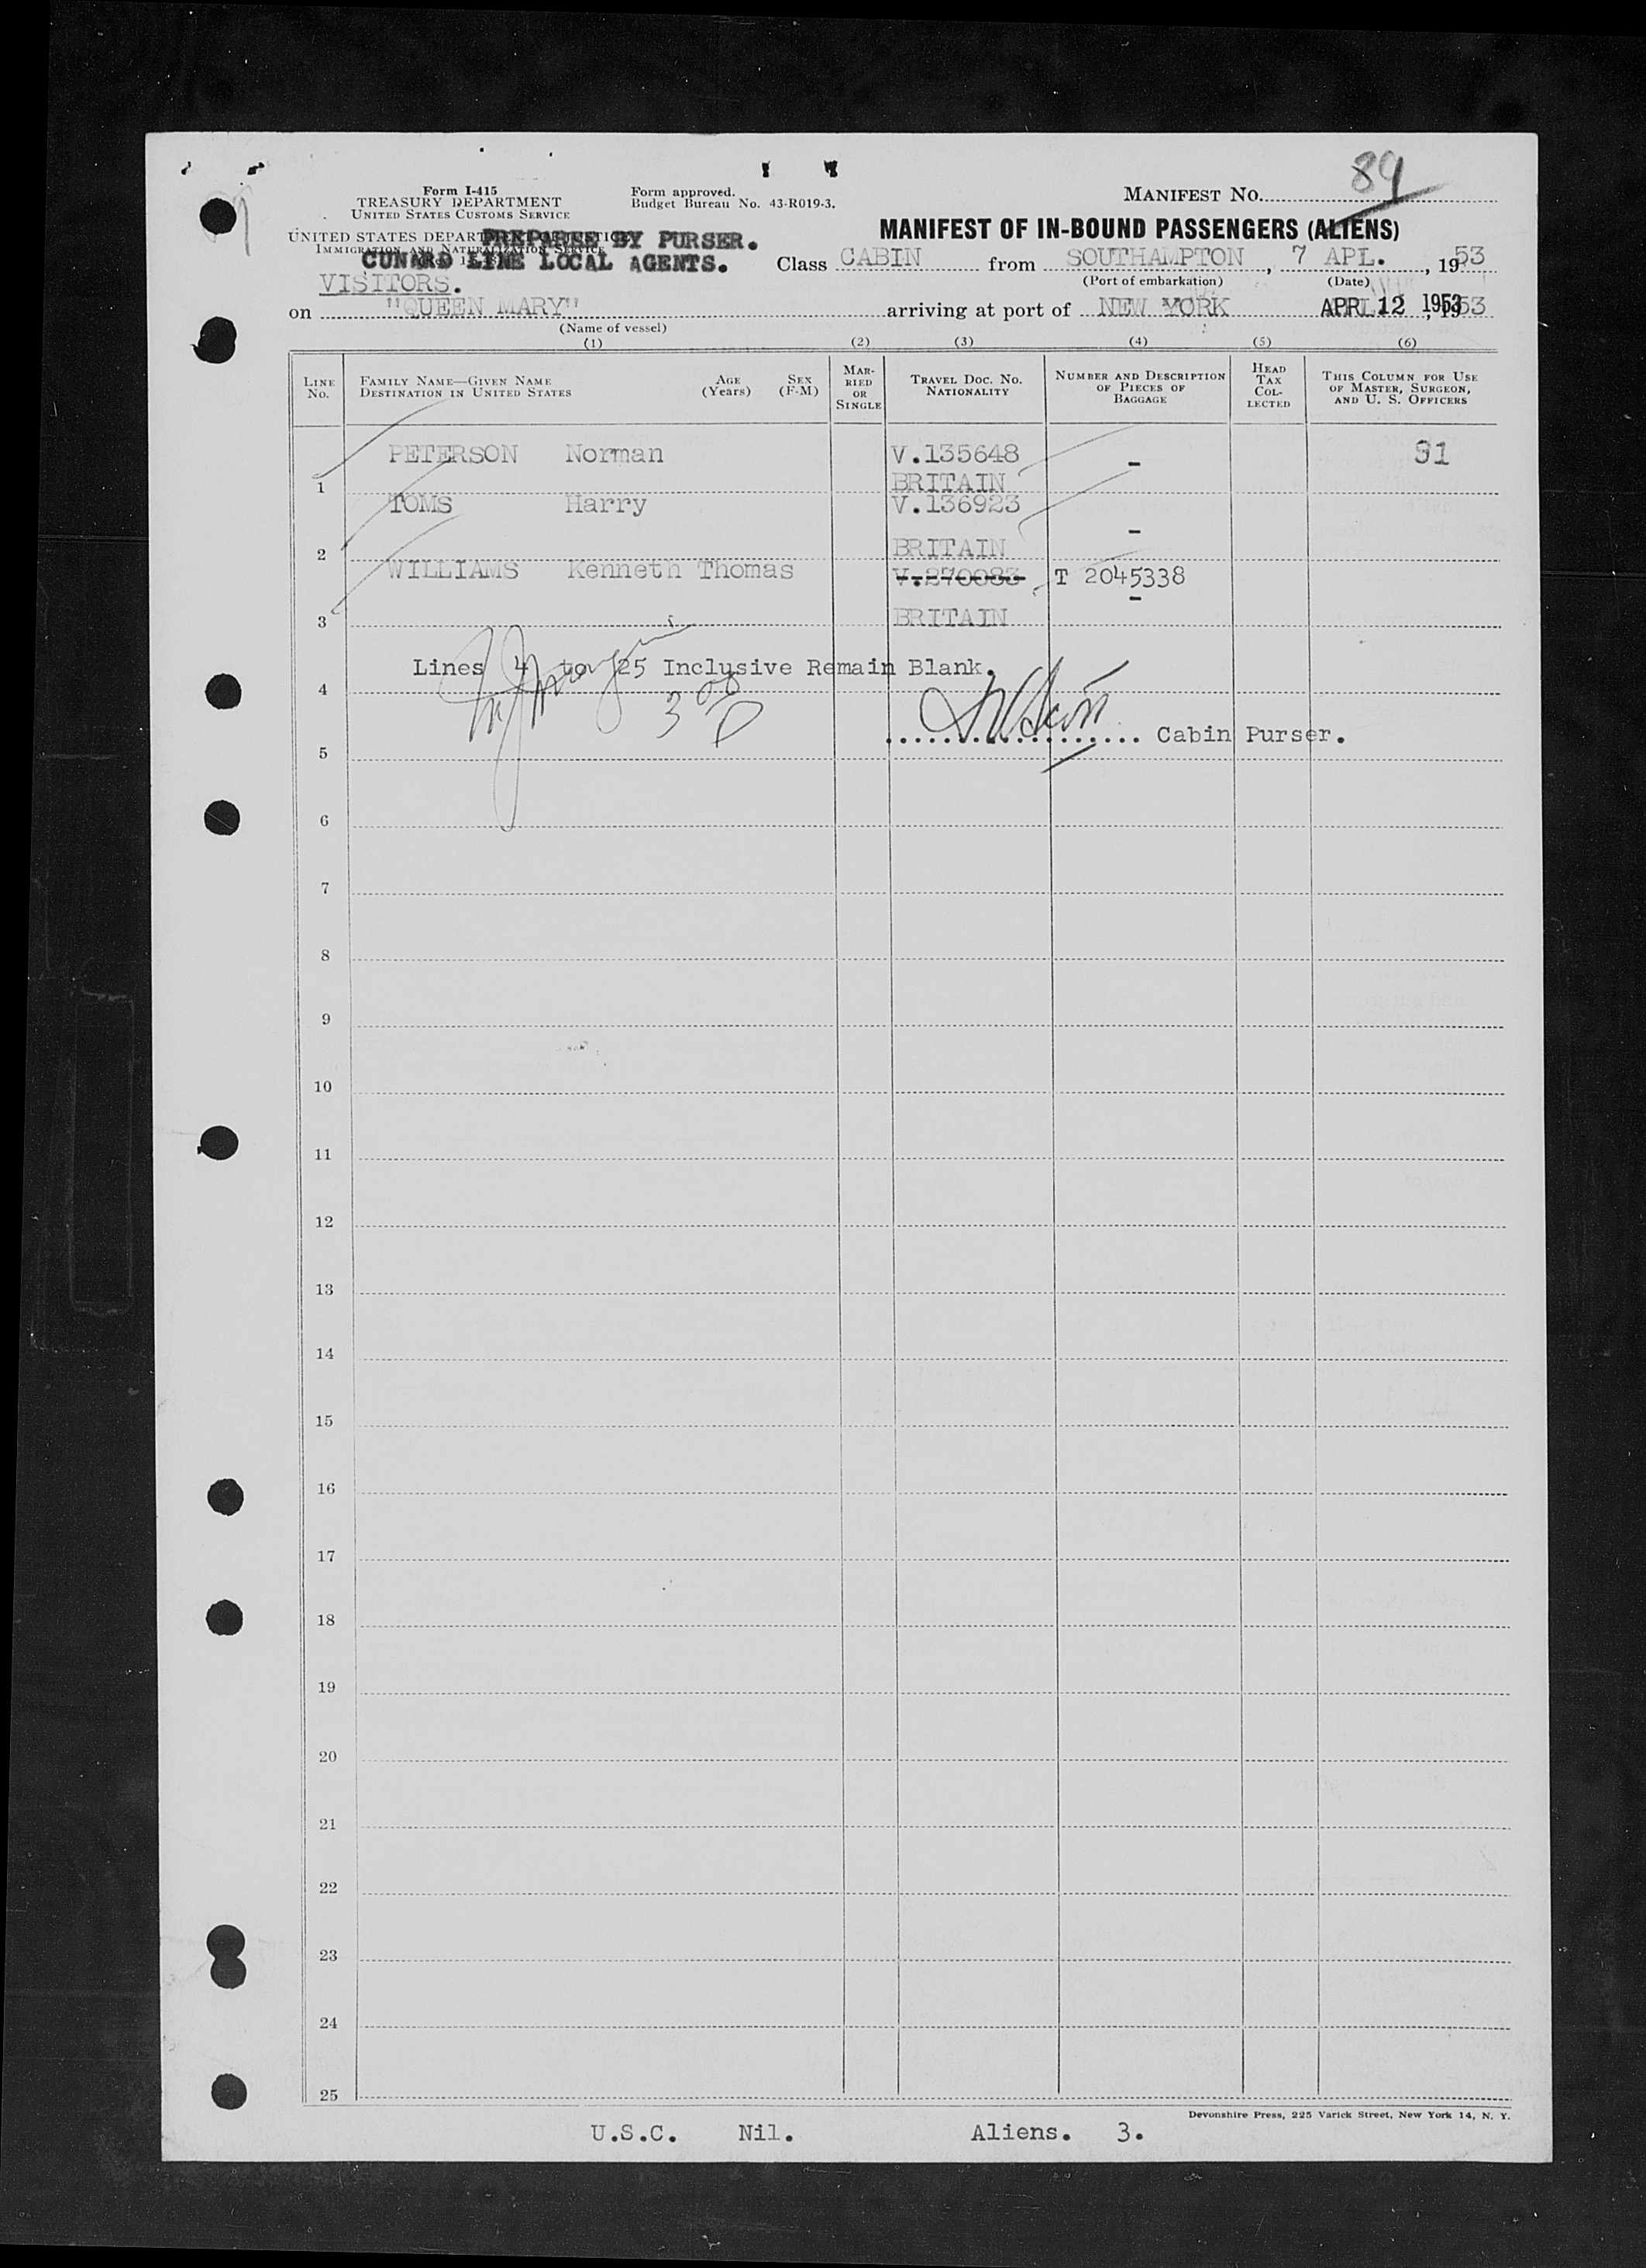 Form I-415
TREASURY DEPARTMENT
UNITED STATES CUSTOMS SERVICE
Form approved.
Budget Bureau No. 43-R019-3.
MANIFEST No. 84
UNITED STATES DEPARTMENT OF JUSTICE
IMMIGRATION AND NATURALIZATION SERVICE
PREPARED BY PURSER.
CUNARD LINE LOCAL AGENTS.
MANIFEST OF IN-BOUND PASSENGERS (ALIENS)
Class CABIN from SOUTHAMPTON, 7 APL., 1953
(Port of embarkation) (Date)
VISITORS.
on "QUEEN MARY" arriving at port of NEW YORK APR 12 1953
(Name of vessel)
(1) (2) (3) (4) (5) (6)
LINE No.
FAMILY NAME—GIVEN NAME
DESTINATION IN UNITED STATES
AGE (Years)
SEX (F-M)
MARRIED OR SINGLE
TRAVEL DOC. NO. NATIONALITY
NUMBER AND DESCRIPTION OF PIECES OF BAGGAGE
HEAD TAX COLLECTED
THIS COLUMN FOR USE OF MASTER, SURGEON, AND U. S. OFFICERS
PETERSON Norman V.135648 - 91
1 BRITAIN
TOMS Harry V.136923
2 BRITAIN -
WILLIAMS Kenneth Thomas V.270083 T 2045338
3 BRITAIN -
Lines 4 to 25 Inclusive Remain Blank.
4
5 Cabin Purser.
6
7
8
9
10
11
12
13
14
15
16
17
18
19
20
21
22
23
24
25
Devonshire Press, 225 Varick Street, New York 14, N. Y.
U.S.C. Nil. Aliens. 3.